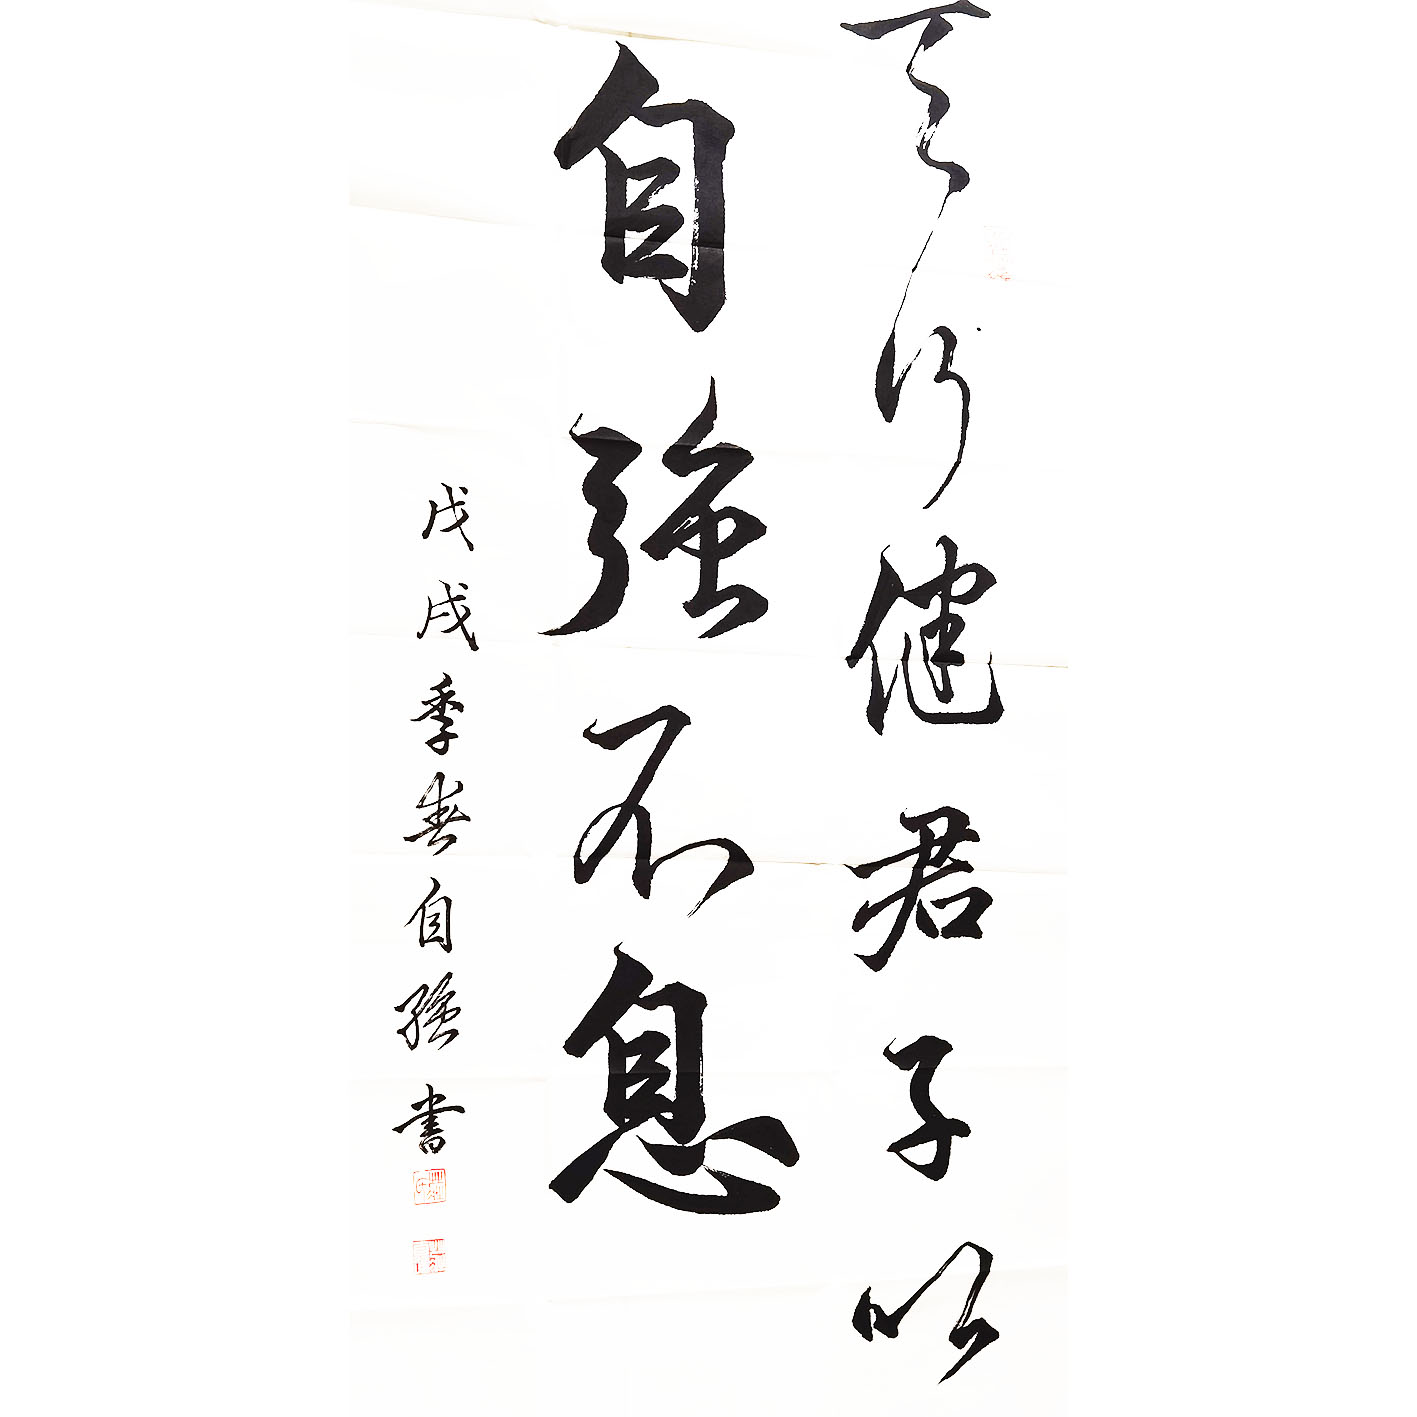 天行健君子以
自強不息
戊戌季春自強書